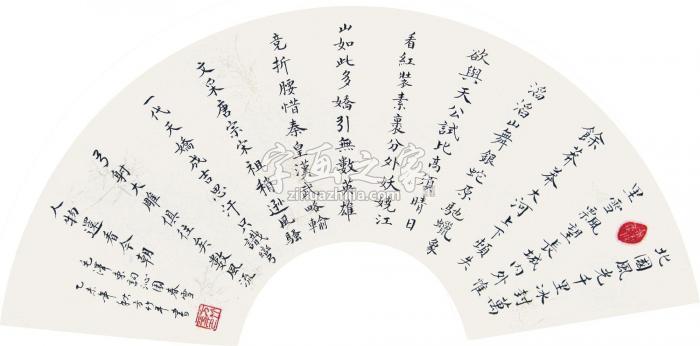 北國風光千里冰封萬
里雪飄望長城內外惟
餘莽莽大河上下頓失
滔滔山舞銀蛇原馳蠟象
欲與天公試比高須晴日
看紅裝素裹分外妖嬈江
山如此多嬌引無數英雄
竞折腰惜秦皇漢武略輸
文采唐宗宋祖稍遜風騷
一代天嬌成吉思汗只識彎
弓射大雕俱往矣數風流
人物還看今朝
毛澤東詞沁園春雪
乙未年秋方竹平書
字画之家
zihuazhijia.com